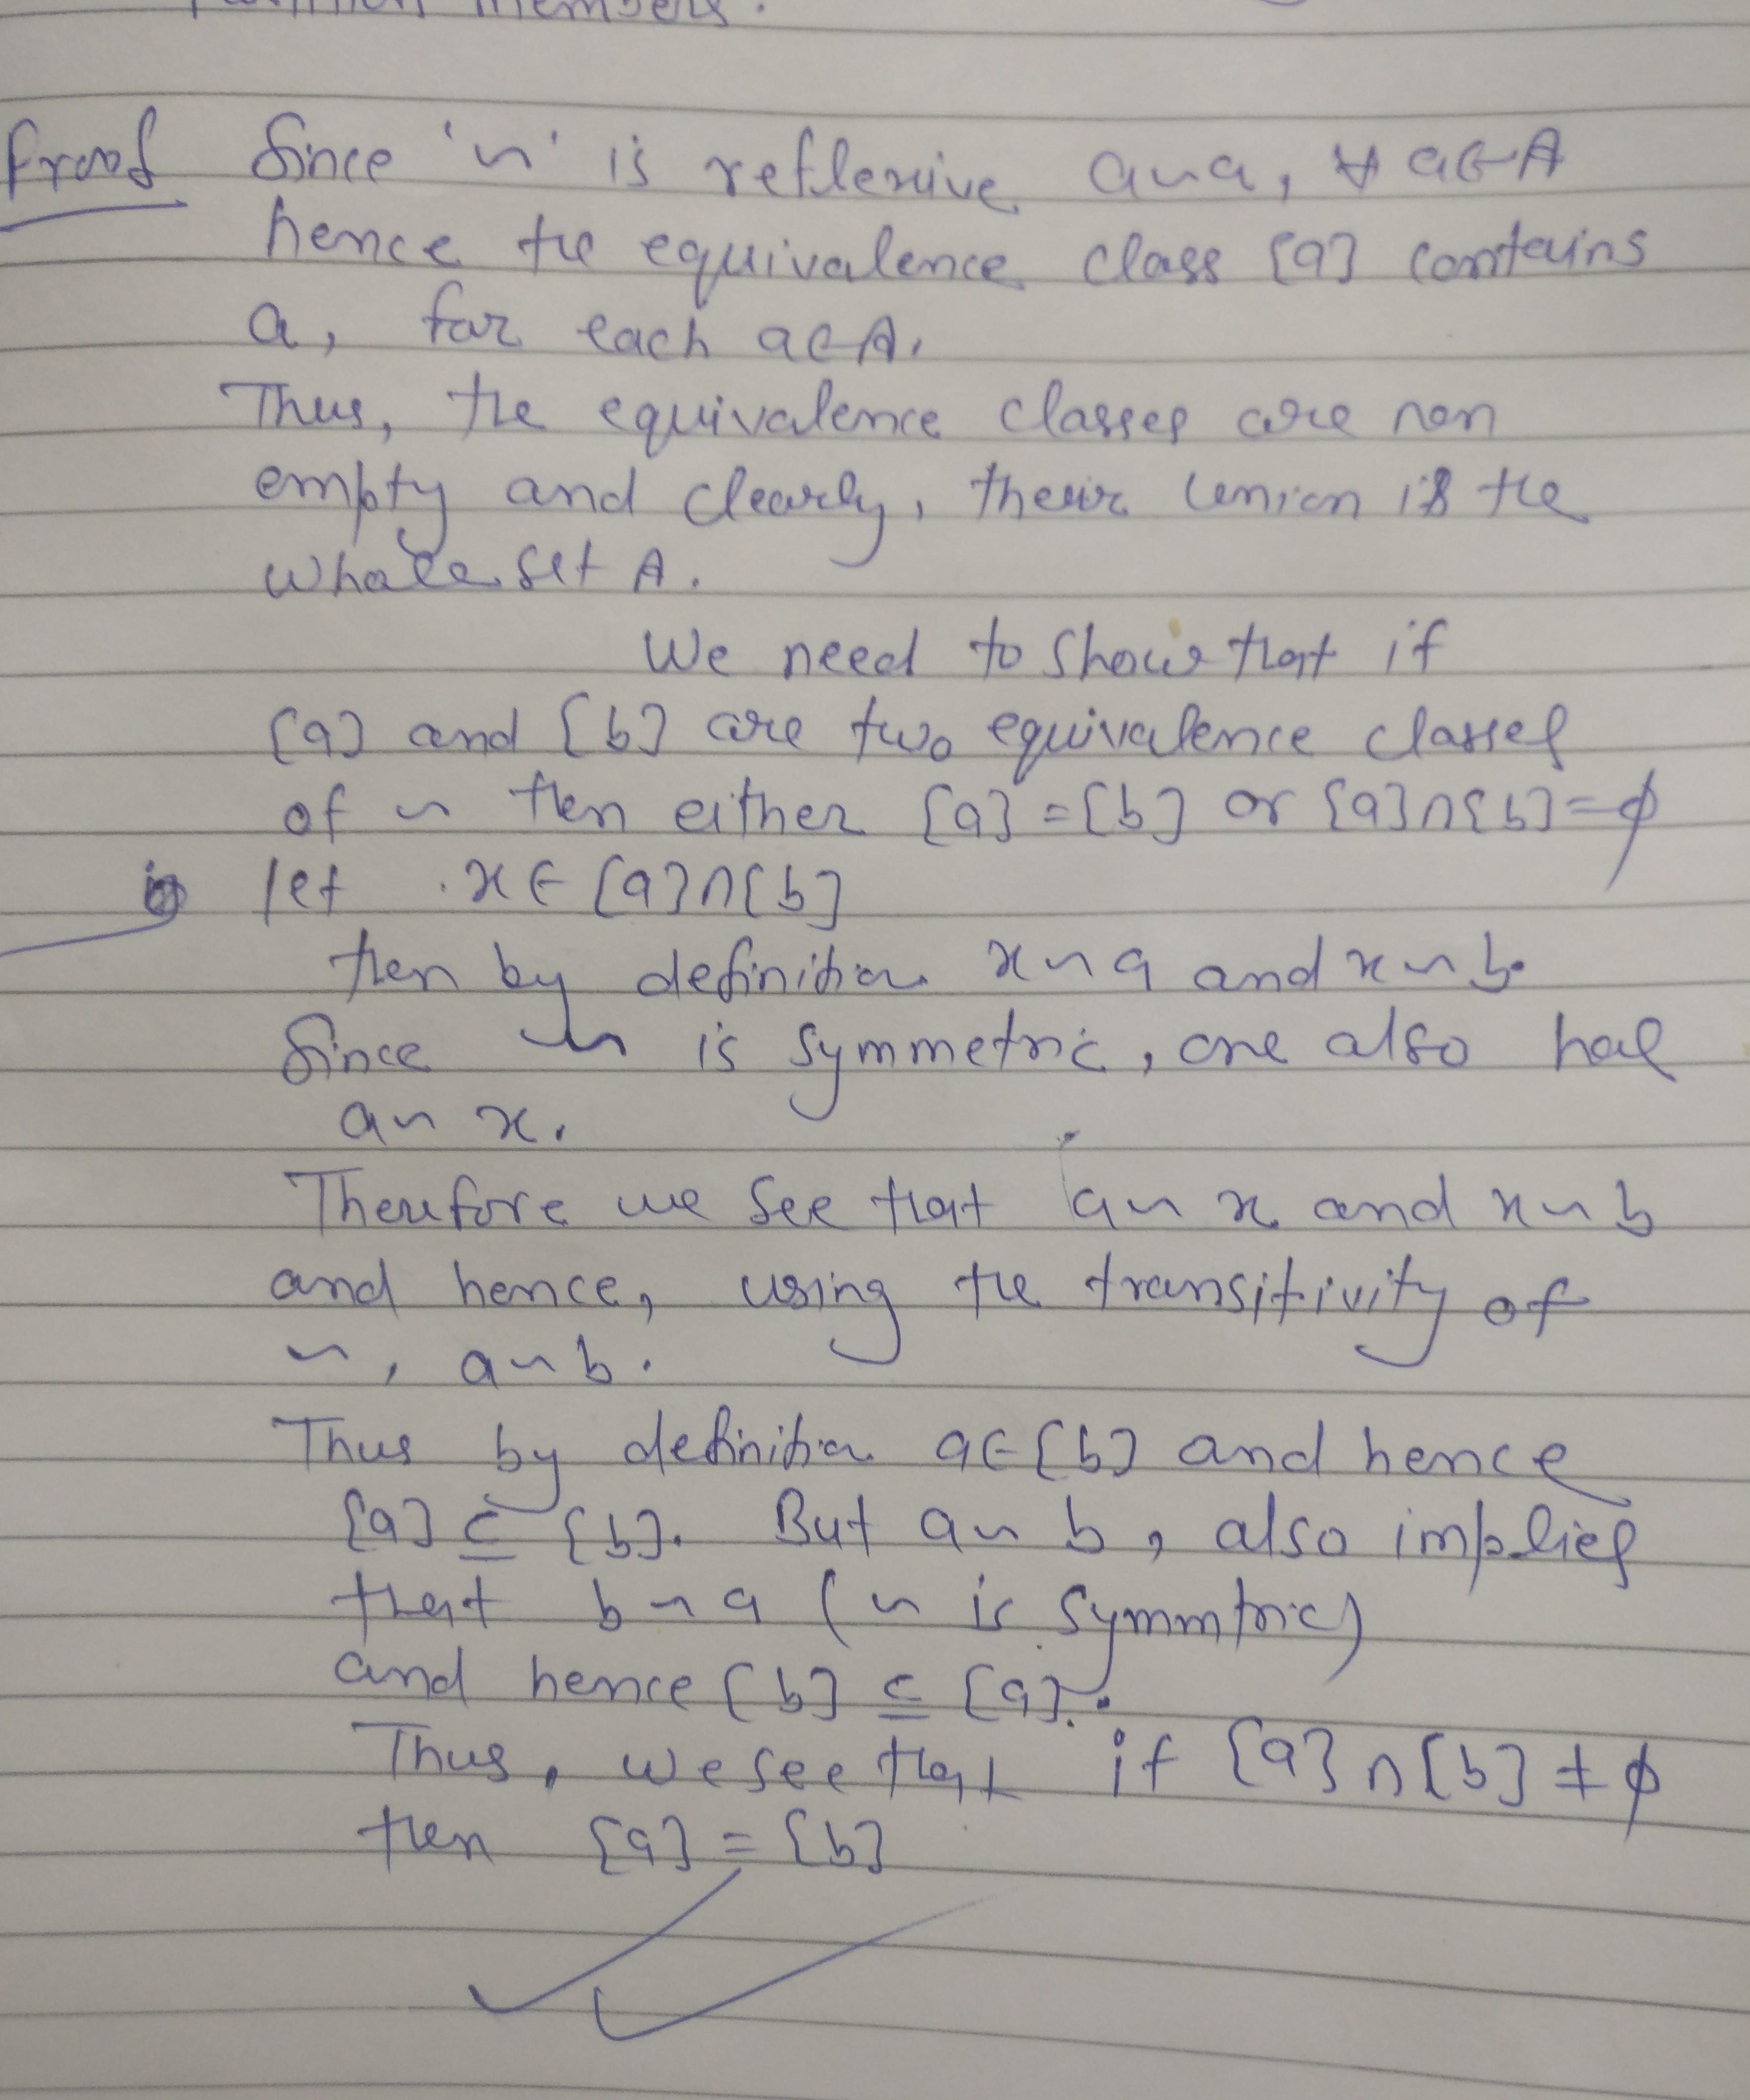 partition members.
Proof Since '~' is reflexive a~a, ∀ a∈A
hence the equivalence class [a] contains
a, for each a∈A.
Thus, the equivalence classes are non
empty and clearly, their union is the
whole set A.
We need to show that if
[a] and [b] are two equivalence classes
of ~ then either [a]=[b] or [a]∩[b]=ϕ
let x∈[a]∩[b]
then by definition x~a and x~b.
Since ~ is symmetric, one also has
a~x.
Therefore we see that a~x and x~b
and hence, using the transitivity of
~, a~b.
Thus by definition a∈[b] and hence
[a]⊆[b]. But a~b, also implies
that b~a (~ is symmtric)
and hence [b]⊆[a].
Thus, we see that if [a]∩[b]≠ϕ
then [a]=[b]